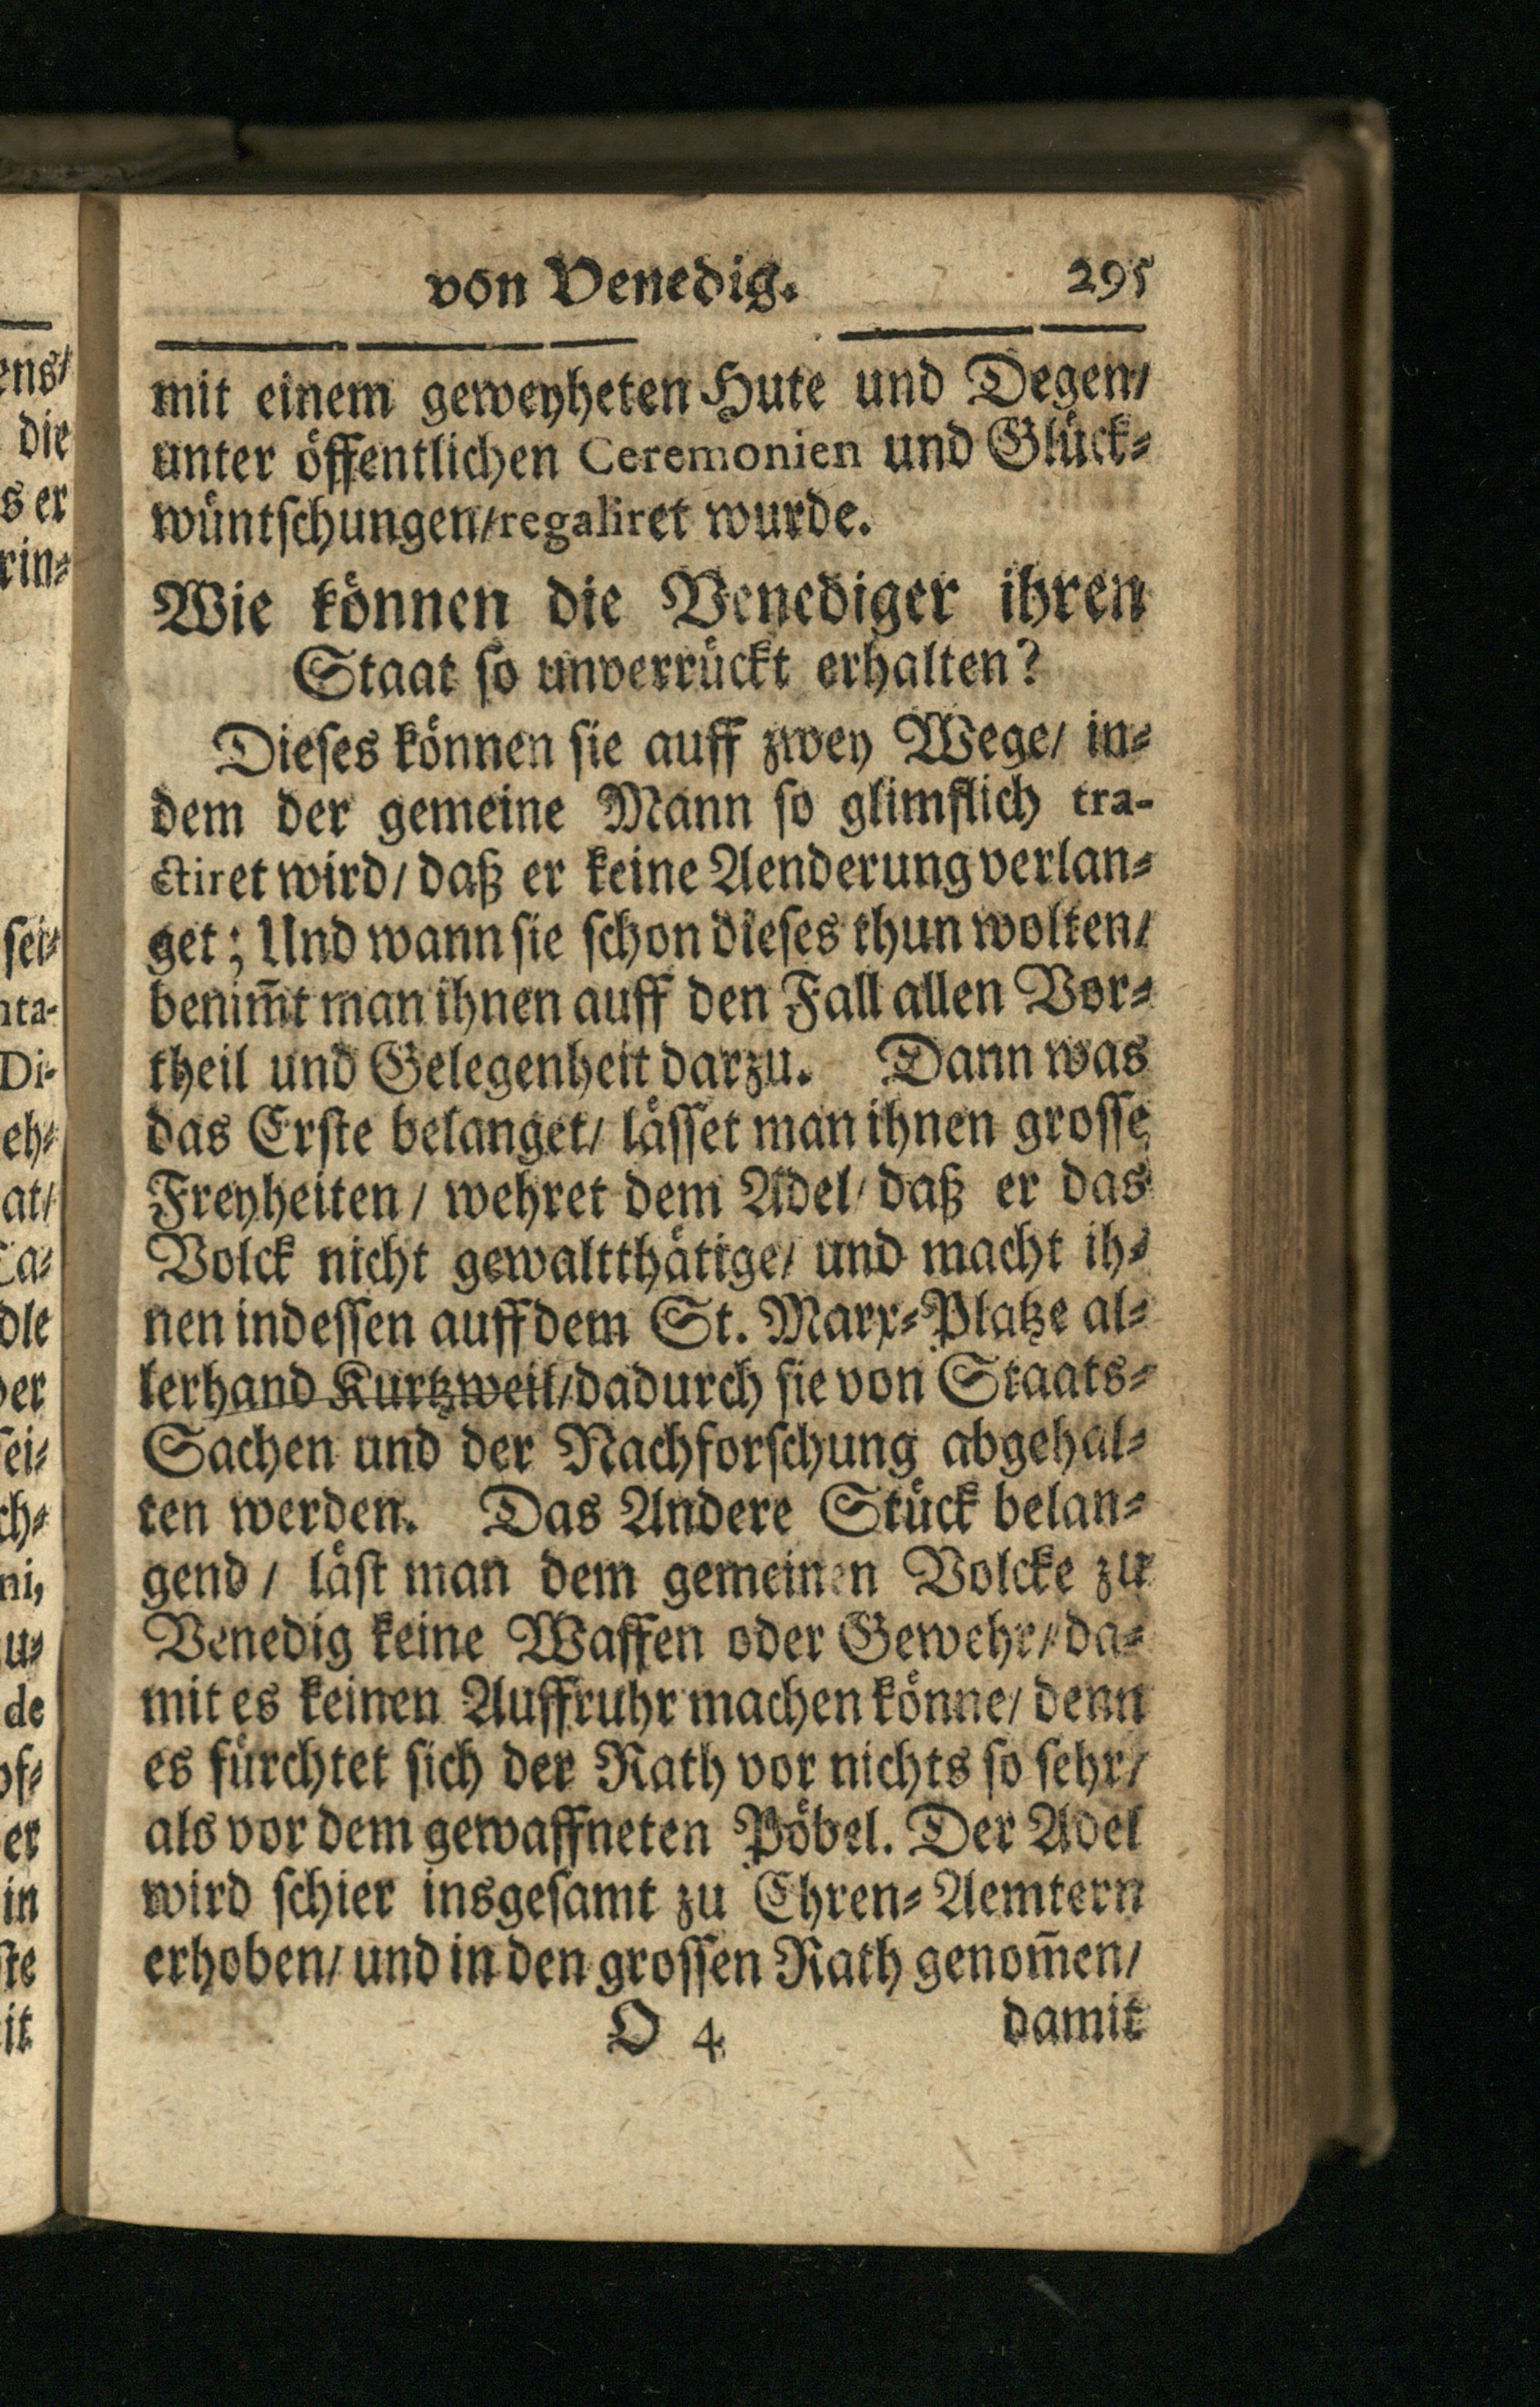 von Venedig. 295
mit einem geweyheten Hute und Degen/
unter öffentlichen Ceremonien und Glück-
wüntschungen/regaliret wurde.
Wie können die Venediger ihren
Staat so unverrückt erhalten?
Dieses können sie auff zwey Wege/ in-
dem der gemeine Mann so glimflich tra-
ctiret wird/ daß er keine Aenderung verlan-
get; Und wann sie schon dieses thun wolten/
benim̄t man ihnen auff den Fall allen Vor-
theil und Gelegenheit darzu. Dann was
das Erste belanget/ lässet man ihnen grosse
Freyheiten/ wehret dem Adel/ daß er das
Volck nicht gewaltthätige/ und macht ih-
nen indessen auff dem St. Marx-Platze al-
lerhand Kurtzweil/dadurch sie von Staats-
Sachen und der Nachforschung abgehal-
ten werden. Das Andere Stück belan-
gend/ läst man dem gemeinen Volcke zu
Venedig keine Waffen oder Gewehr/ da-
mit es keinen Auffruhr machen könne/ denn
es fürchtet sich der Rath vor nichts so sehr/
als vor dem gewaffneten Pöbel. Der Adel
wird schier insgesamt zu Ehren-Aemtern
erhoben/ und in den grossen Rath genom̄en/
O 4 damit